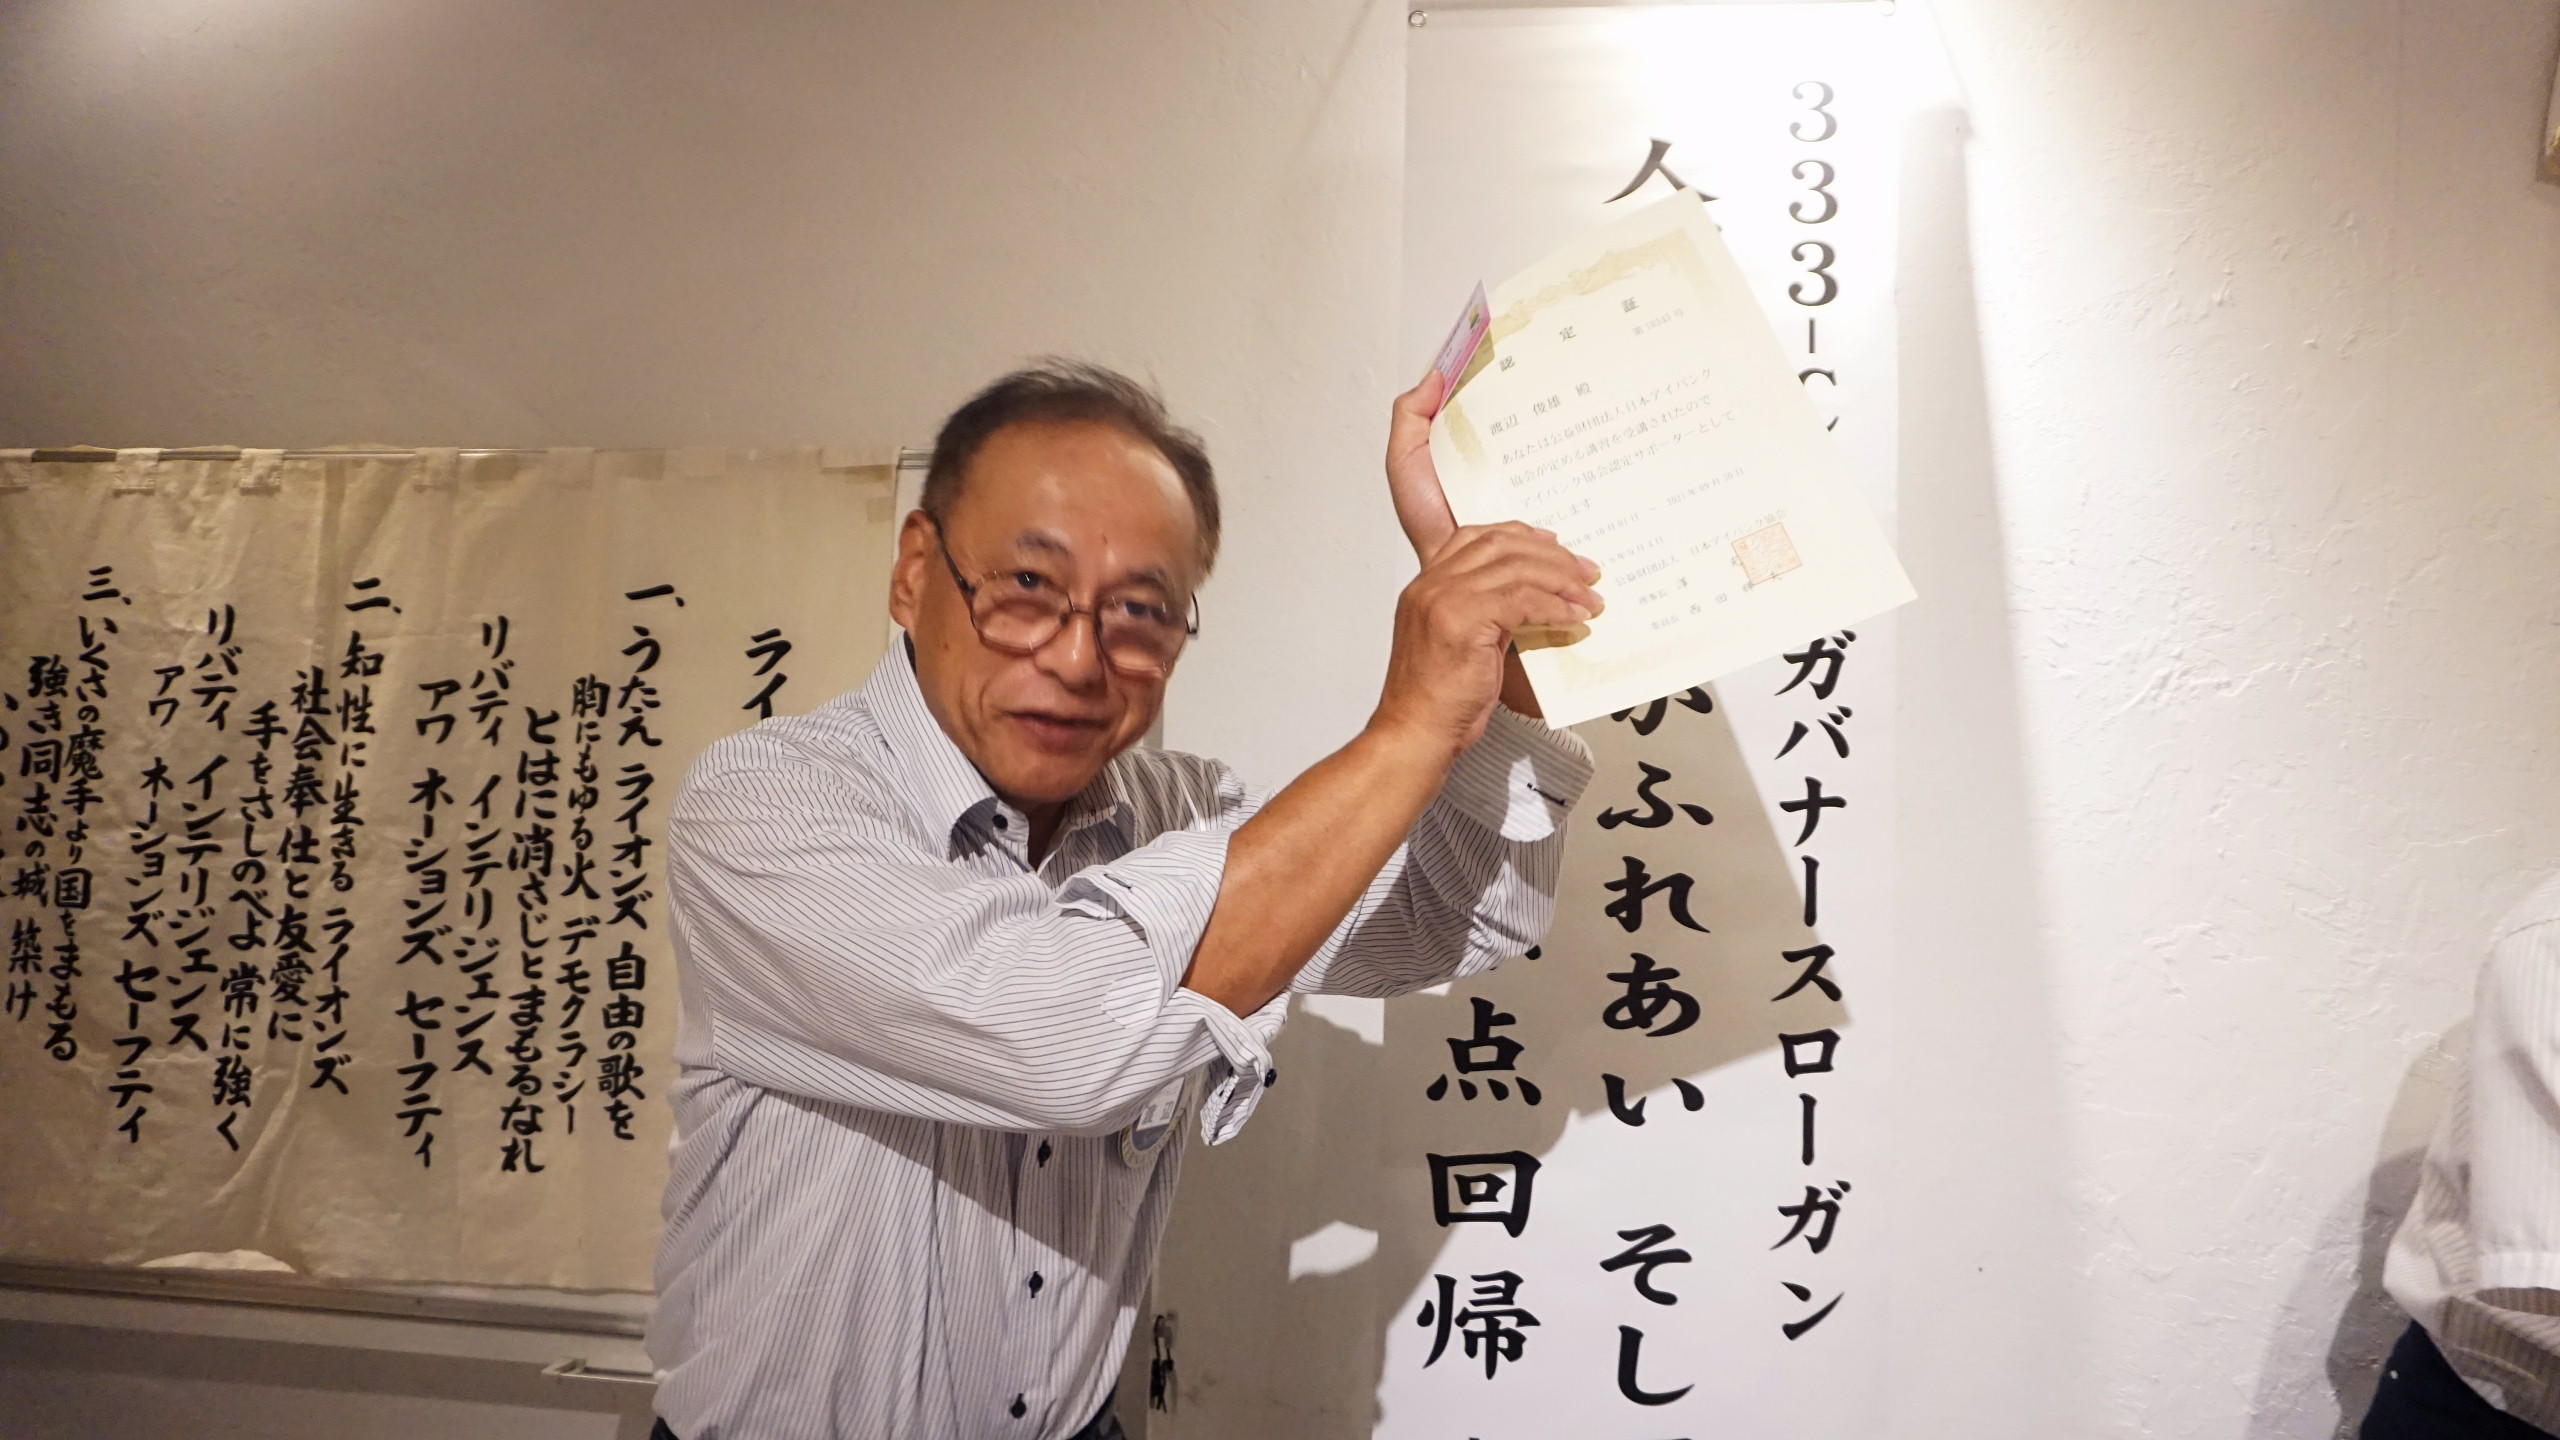 333-C
ガバナースローガン
人
ふれあい そし
点回帰
認定証
第10343号
渡辺 俊雄 殿
あなたは公益財団法人日本アイバンク
協会が定める講習を受講されたので
アイバンク協会認定サポーターとして
認定します
公益財団法人 日本アイバンク協会
理事長 澤
ライ
一、うたえ ライオンズ 自由の歌を
胸にもゆる火 デモクラシー
とはに消さじとまもるなれ
リバティ インテリジェンス
アワ ネーションズ セーフティ
二、知性に生きる ライオンズ
社会奉仕と友愛に
手をさしのべよ 常に強く
リバティ インテリジェンス
アワ ネーションズ セーフティ
三、いくさの魔手より国をまもる
強き同志の城 築け
渡辺